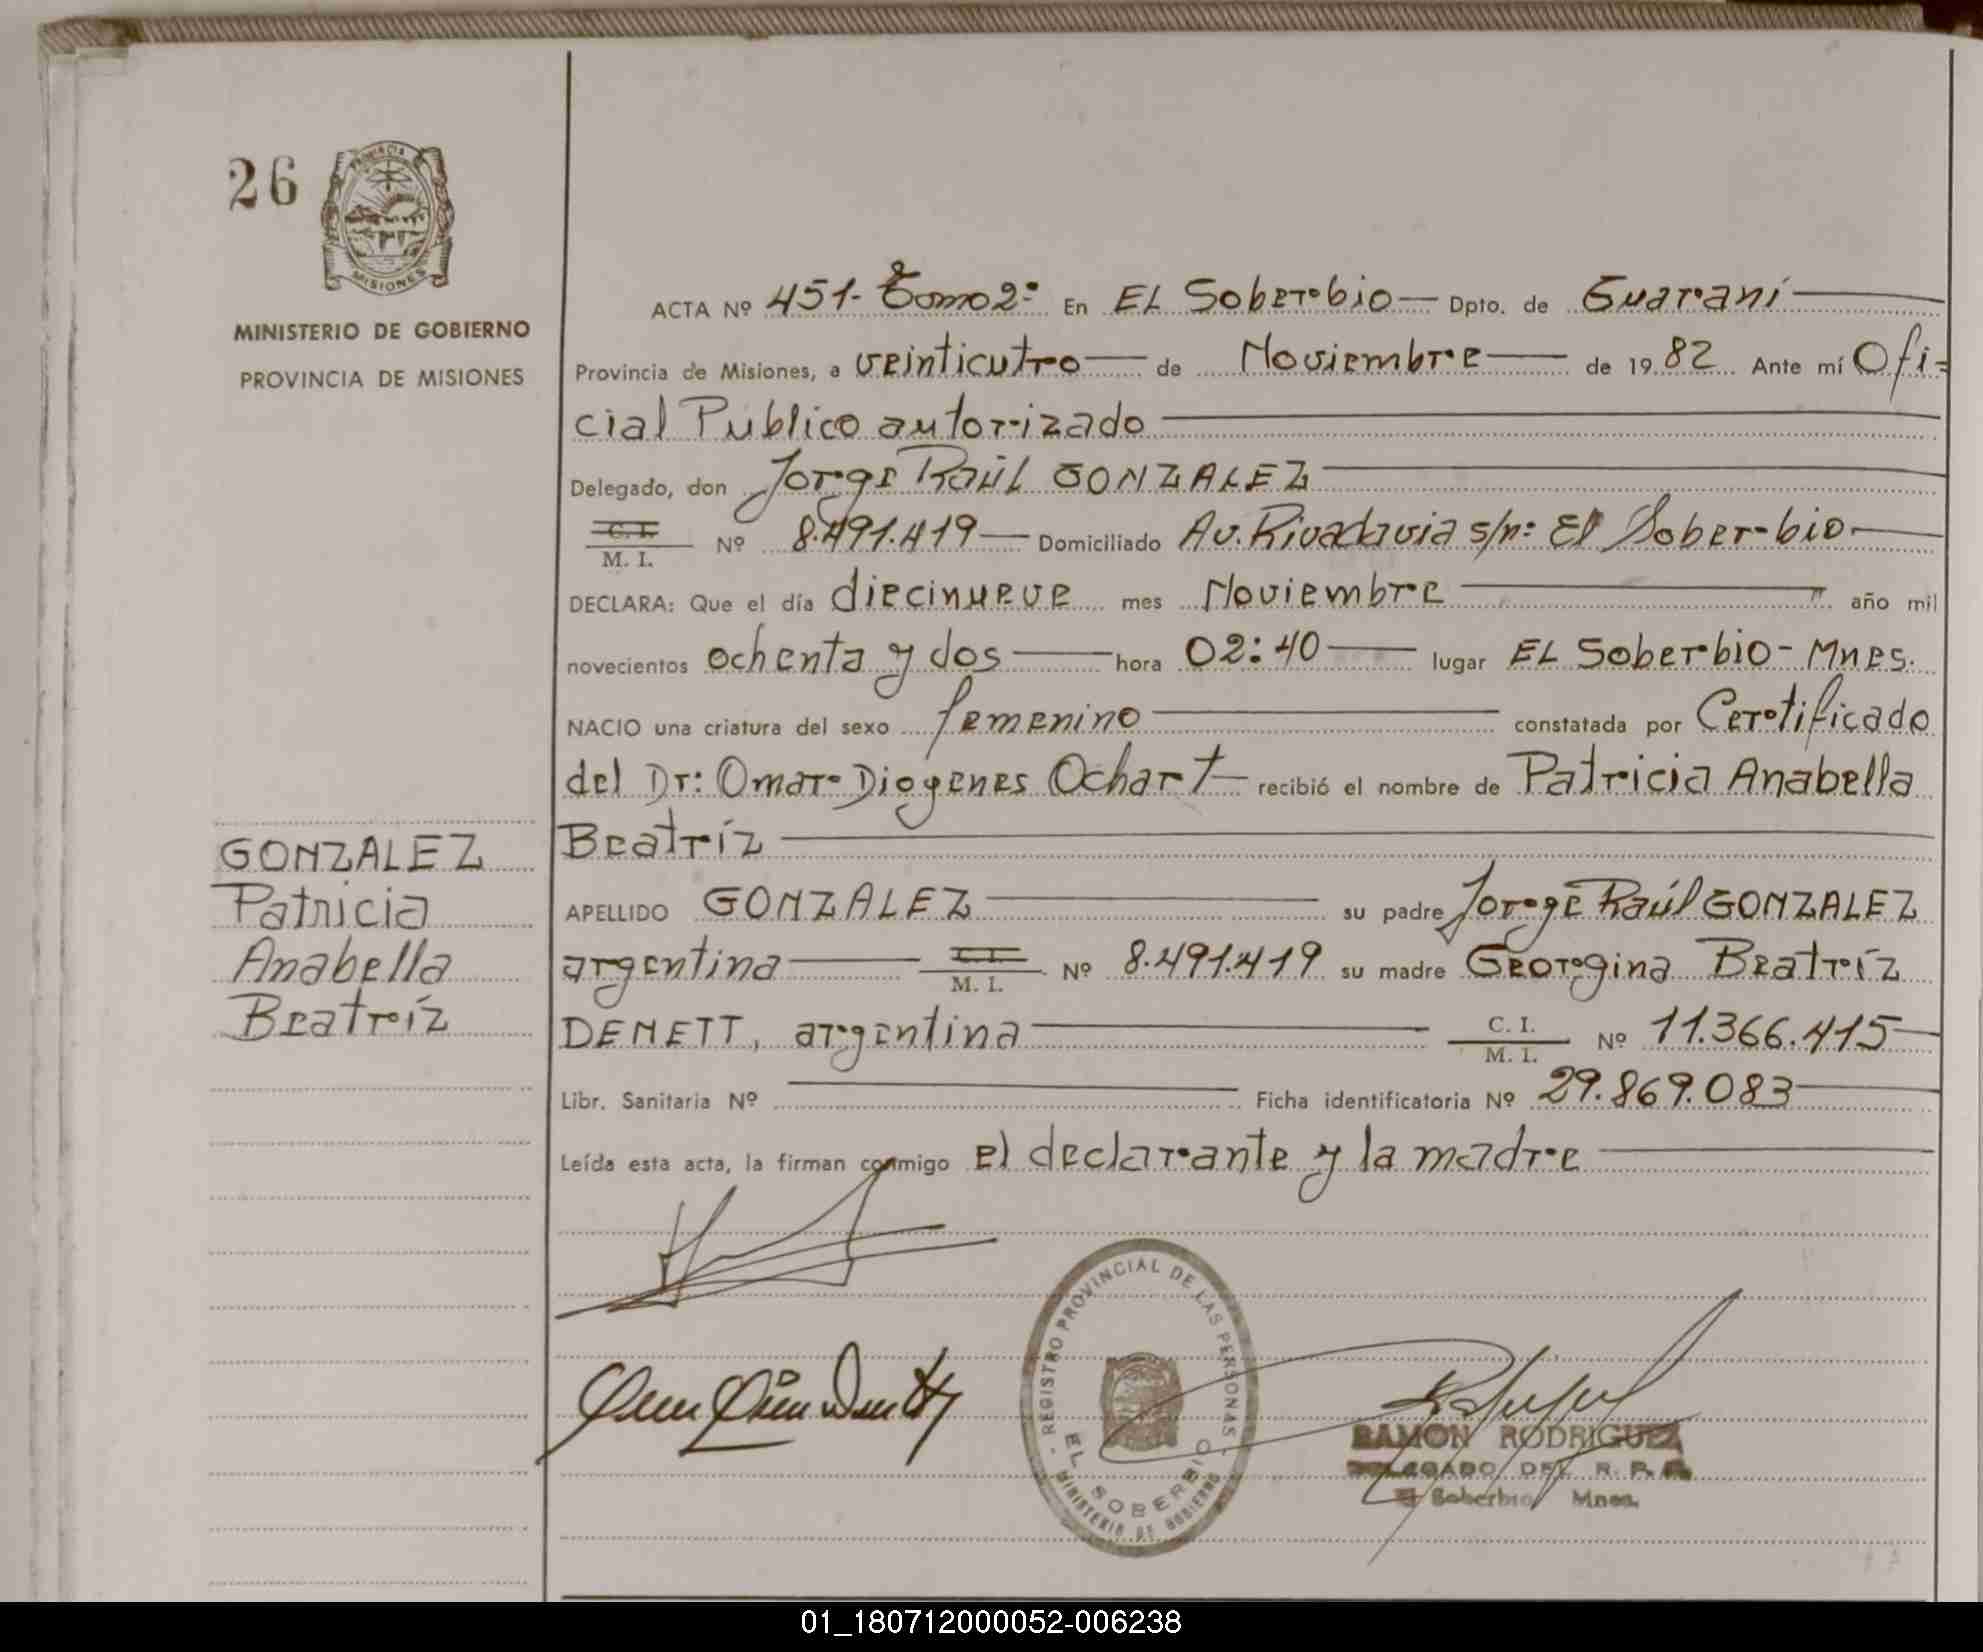 26
PROVINCIA DE
MISIONES
MINISTERIO DE GOBIERNO
PROVINCIA DE MISIONES
ACTA Nº 451- Tomo 2º En EL Soberbio Dpto. de Guaraní
Provincia de Misiones, a veinticutro de Noviembre de 1982 Ante mí Ofi-
cial Público autorizado
Delegado, don Jorge Raúl GONZALEZ
C. I.
M. I. Nº 8.491.419 Domiciliado Av. Rivadavia s/n: El Soberbio
DECLARA: Que el día diecinueve mes Noviembre año mil
novecientos ochenta y dos hora 02:40 lugar EL Soberbio - Mnes.
NACIO una criatura del sexo femenino constatada por Certificado
del Dr: Omar Diogenes Ochart recibió el nombre de Patricia Anabella
Beatríz
APELLIDO GONZALEZ su padre Jorge Raúl GONZALEZ
argentina C. I. M. I. Nº 8.491.419 su madre Georgina Beatríz
DENETT, argentina C. I. M. I. Nº 11.366.415
Libr. Sanitaria Nº Ficha identificatoria Nº 29.869.083
Leída esta acta, la firman conmigo el declarante y la madre
GONZALEZ
Patricia
Anabella
Beatríz
- REGISTRO PROVINCIAL DE LAS PERSONAS -
EL SOBERBIO
MINISTERIO DE GOBIERNO
RAMON RODRIGUEZ
DELEGADO DEL R. P. P.
El Soberbio Mnes.
01_180712000052-006238